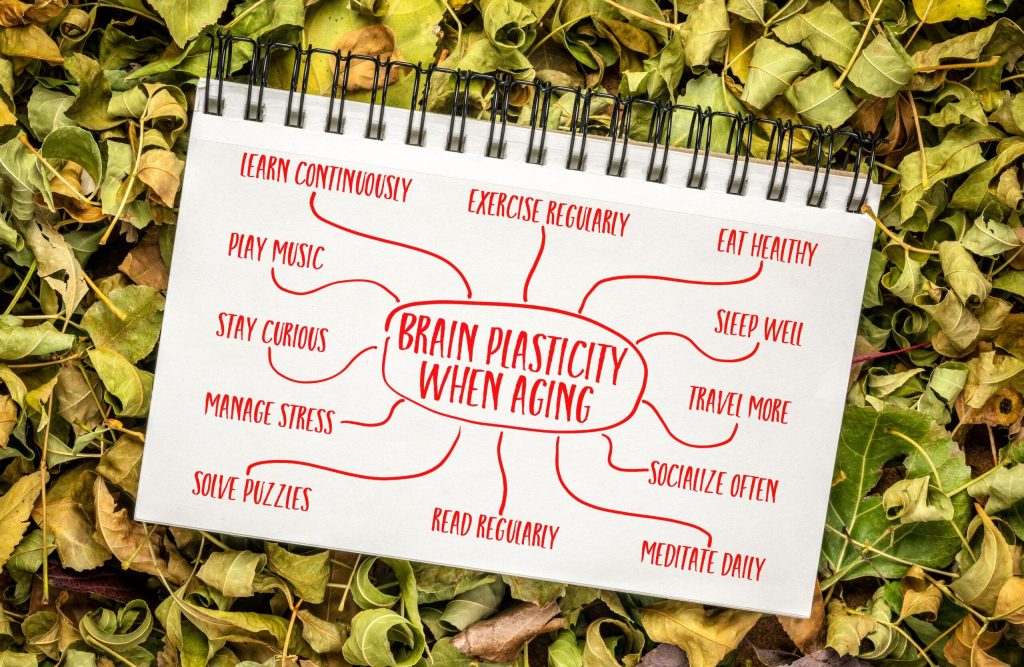 LEARN CONTINUOUSLY
EXERCISE REGULARLY
EAT HEALTHY
PLAY MUSIC
SLEEP WELL
STAY CURIOUS
BRAIN PLASTICITY
WHEN AGING
TRAVEL MORE
MANAGE STRESS
SOCIALIZE OFTEN
SOLVE PUZZLES
READ REGULARLY
MEDITATE DAILY